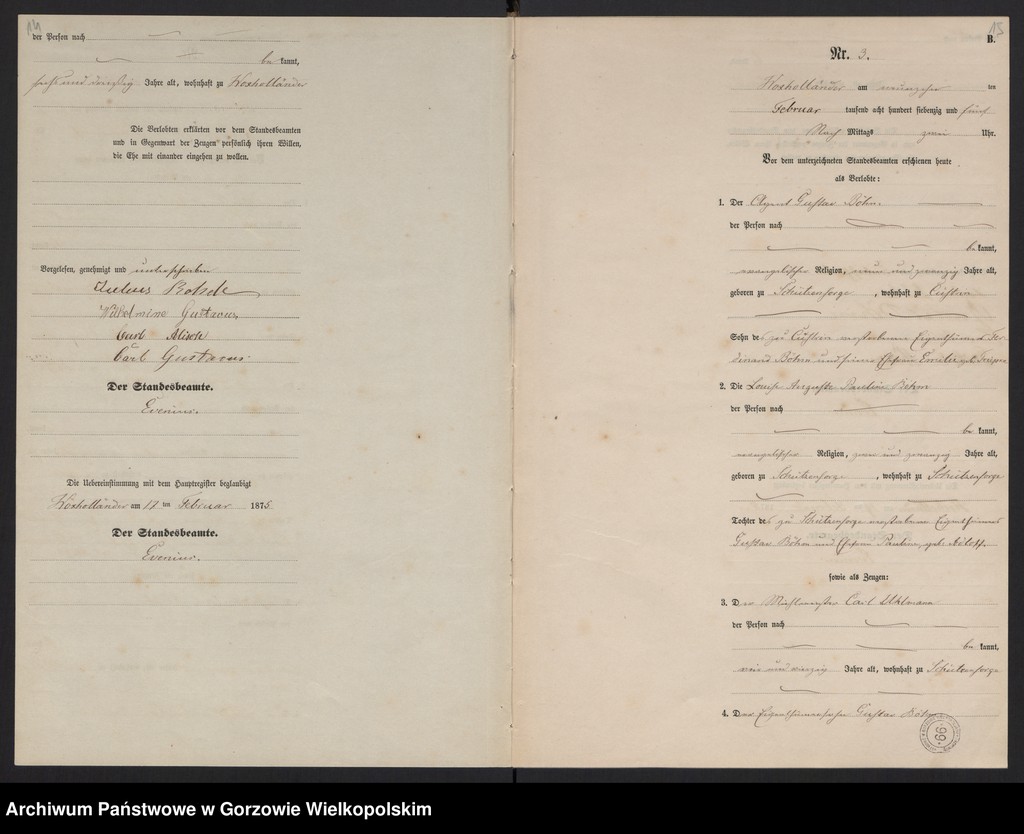 14
der Person nach
bekannt,
sechs und dreißig Jahre alt, wohnhaft zu Woxholländer
Die Verlobten erklärten vor dem Standesbeamten
und in Gegenwart der Zeugen persönlich ihren Willen,
die Ehe mit einander eingehen zu wollen.
Vorgelesen, genehmigt und unterschrieben
Julius Rohde
Wilhelmine Gustavus
Carl
Carl Gustavus.
Der Standesbeamte.
Evenius.
Die Uebereinstimmung mit dem Hauptregister beglaubigt
Woxholländer am 17 ten Februar 1875
Der Standesbeamte.
Evenius.
15
B.
Nr. 3.
Woxholländer am neunzehn ten
Februar tausend acht hundert siebenzig und fünf
Nach Mittags zwei Uhr.
Vor dem unterzeichneten Standesbeamten erschienen heute
als Verlobte:
1. Der Agent Gustav Böhm.
der Person nach
bekannt,
evangelischer Religion, neun und zwanzig Jahre alt,
geboren zu Schützensorge, wohnhaft zu Cüstrin
Sohn des zu Cüstrin verstorbenen Eigenthümers Fer-
dinand Böhm und seiner Ehefrau Emilie geb.
2. Die Louise Auguste Pauline Böhm
der Person nach
bekannt,
evangelischer Religion, zwei und zwanzig Jahre alt,
geboren zu Schützensorge, wohnhaft zu Schützensorge
Tochter des zu Schützensorge verstorbenen Eigenthümers
Gustav Böhm und Ehefrau Pauline, geb.
sowie als Zeugen:
3. Der Mühlenmeister Carl Uhlmann
der Person nach
bekannt,
vier und vierzig Jahre alt, wohnhaft zu Schützensorge
4. Der Eigenthümersohn Gustav Böhm
66
Archiwum Państwowe w Gorzowie Wielkopolskim